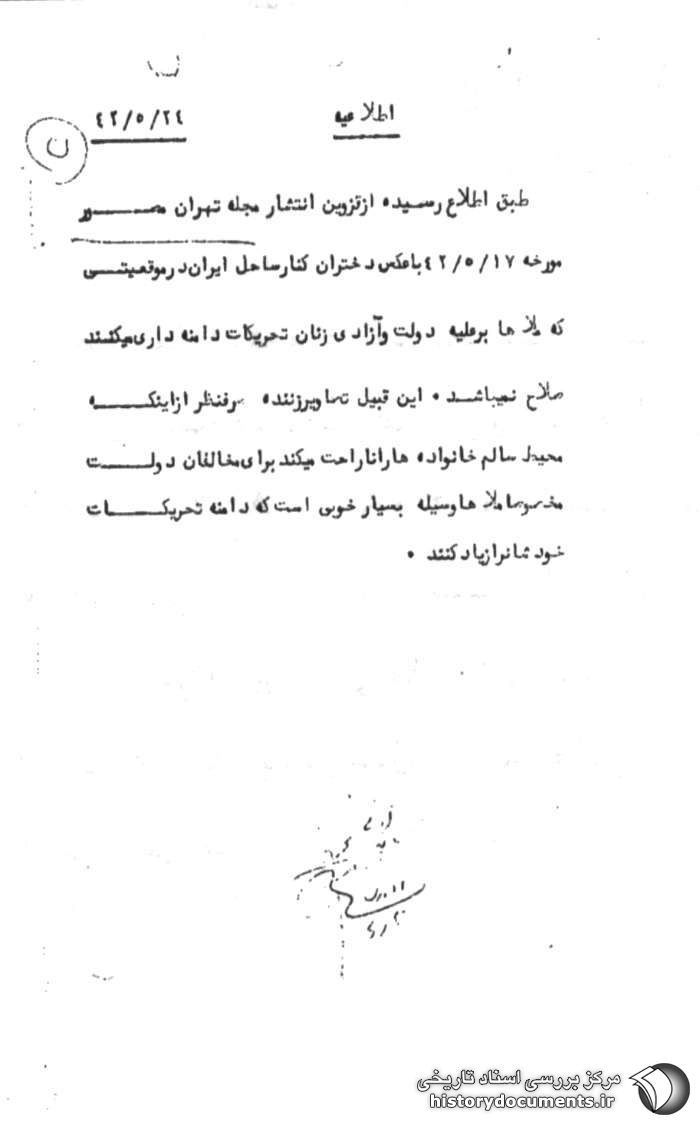 اطلاعیه
۴۲/۵/۲٤
ن
طبق اطلاع رسیده ازقزوین انتشار مجله تهران مصـــور
مورخه ۴۲/۵/۱۷ باعکس دختران کنارساحل ایران درموقعیتـــی
که ملاها برعلیه دولت وآزادی زنان تحریکات دامنه داری میکنند
صلاح نمیباشـــد ۰ این قبیل تصاویرزننده صرفنظر ازاینکـــه
محیط سالم خانواده هاراناراحت میکند برای مخالفان دولـــت
مخصوصا ملاها وسیله بسیار خوبی است که دامنه تحریکـــات
خود شانرا زیاد کنند ۰
مرکز بررسی اسناد تاریخی
historydocuments.ir